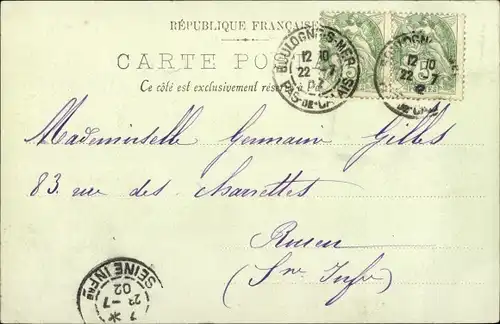 RÉPUBLIQUE FRANÇAISE
CARTE PO
Ce côté est exclusivement réservé à
BOULOGNE-S-MER
12 30
22 7
PAS-DE-CAL
12 30
22 7
5
Mademoiselle Germain Gilles
83. rue des Charrettes
Rouen
(Sne Infre)
7
23 -7
02
SEINE INFRE